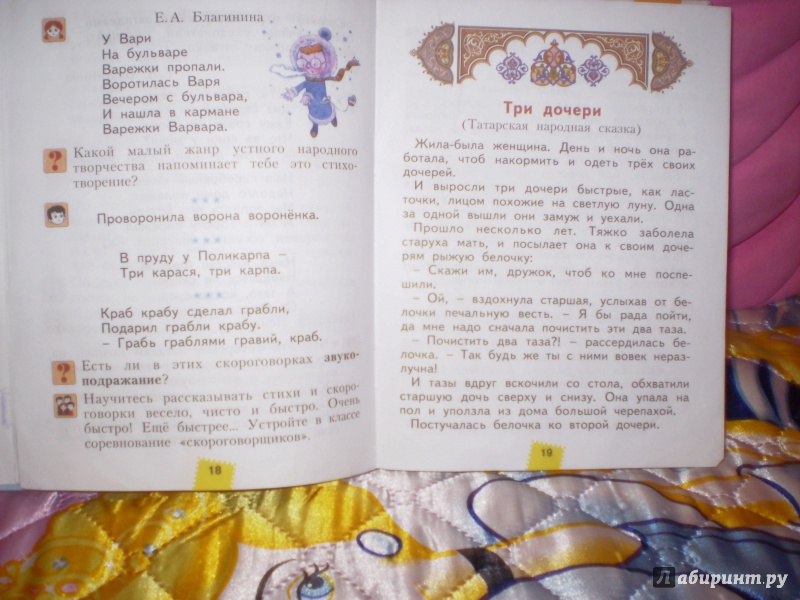 Е. А. Благинина
У Вари
На бульваре
Варежки пропали.
Воротилась Варя
Вечером с бульвара,
И нашла в кармане
Варежки Варвара.
? Какой малый жанр устного народного
творчества напоминает тебе это стихо-
творение?
* * *
Проворонила ворона воронёнка.
* * *
В пруду у Поликарпа –
Три карася, три карпа.
* * *
Краб крабу сделал грабли,
Подарил грабли крабу.
– Грабь граблями гравий, краб.
? Есть ли в этих скороговорках звуко-
подражание?
Научитесь рассказывать стихи и скоро-
говорки весело, чисто и быстро. Очень
быстро! Ещё быстрее... Устройте в классе
соревнование «скороговорщиков».
18
Три дочери
(Татарская народная сказка)
Жила-была женщина. День и ночь она ра-
ботала, чтоб накормить и одеть трёх своих
дочерей.
И выросли три дочери быстрые, как лас-
точки, лицом похожие на светлую луну. Одна
за одной вышли они замуж и уехали.
Прошло несколько лет. Тяжко заболела
старуха мать, и посылает она к своим доче-
рям рыжую белочку:
– Скажи им, дружок, чтоб ко мне поспе-
шили.
– Ой, – вздохнула старшая, услыхав от бе-
лочки печальную весть. – Я бы рада пойти,
да мне надо сначала почистить эти два таза.
– Почистить два таза?! – рассердилась бе-
лочка. – Так будь же ты с ними вовек нераз-
лучна!
И тазы вдруг вскочили со стола, обхватили
старшую дочь сверху и снизу. Она упала на
пол и уползла из дома большой черепахой.
Постучалась белочка ко второй дочери.
19
Лабиринт.ру